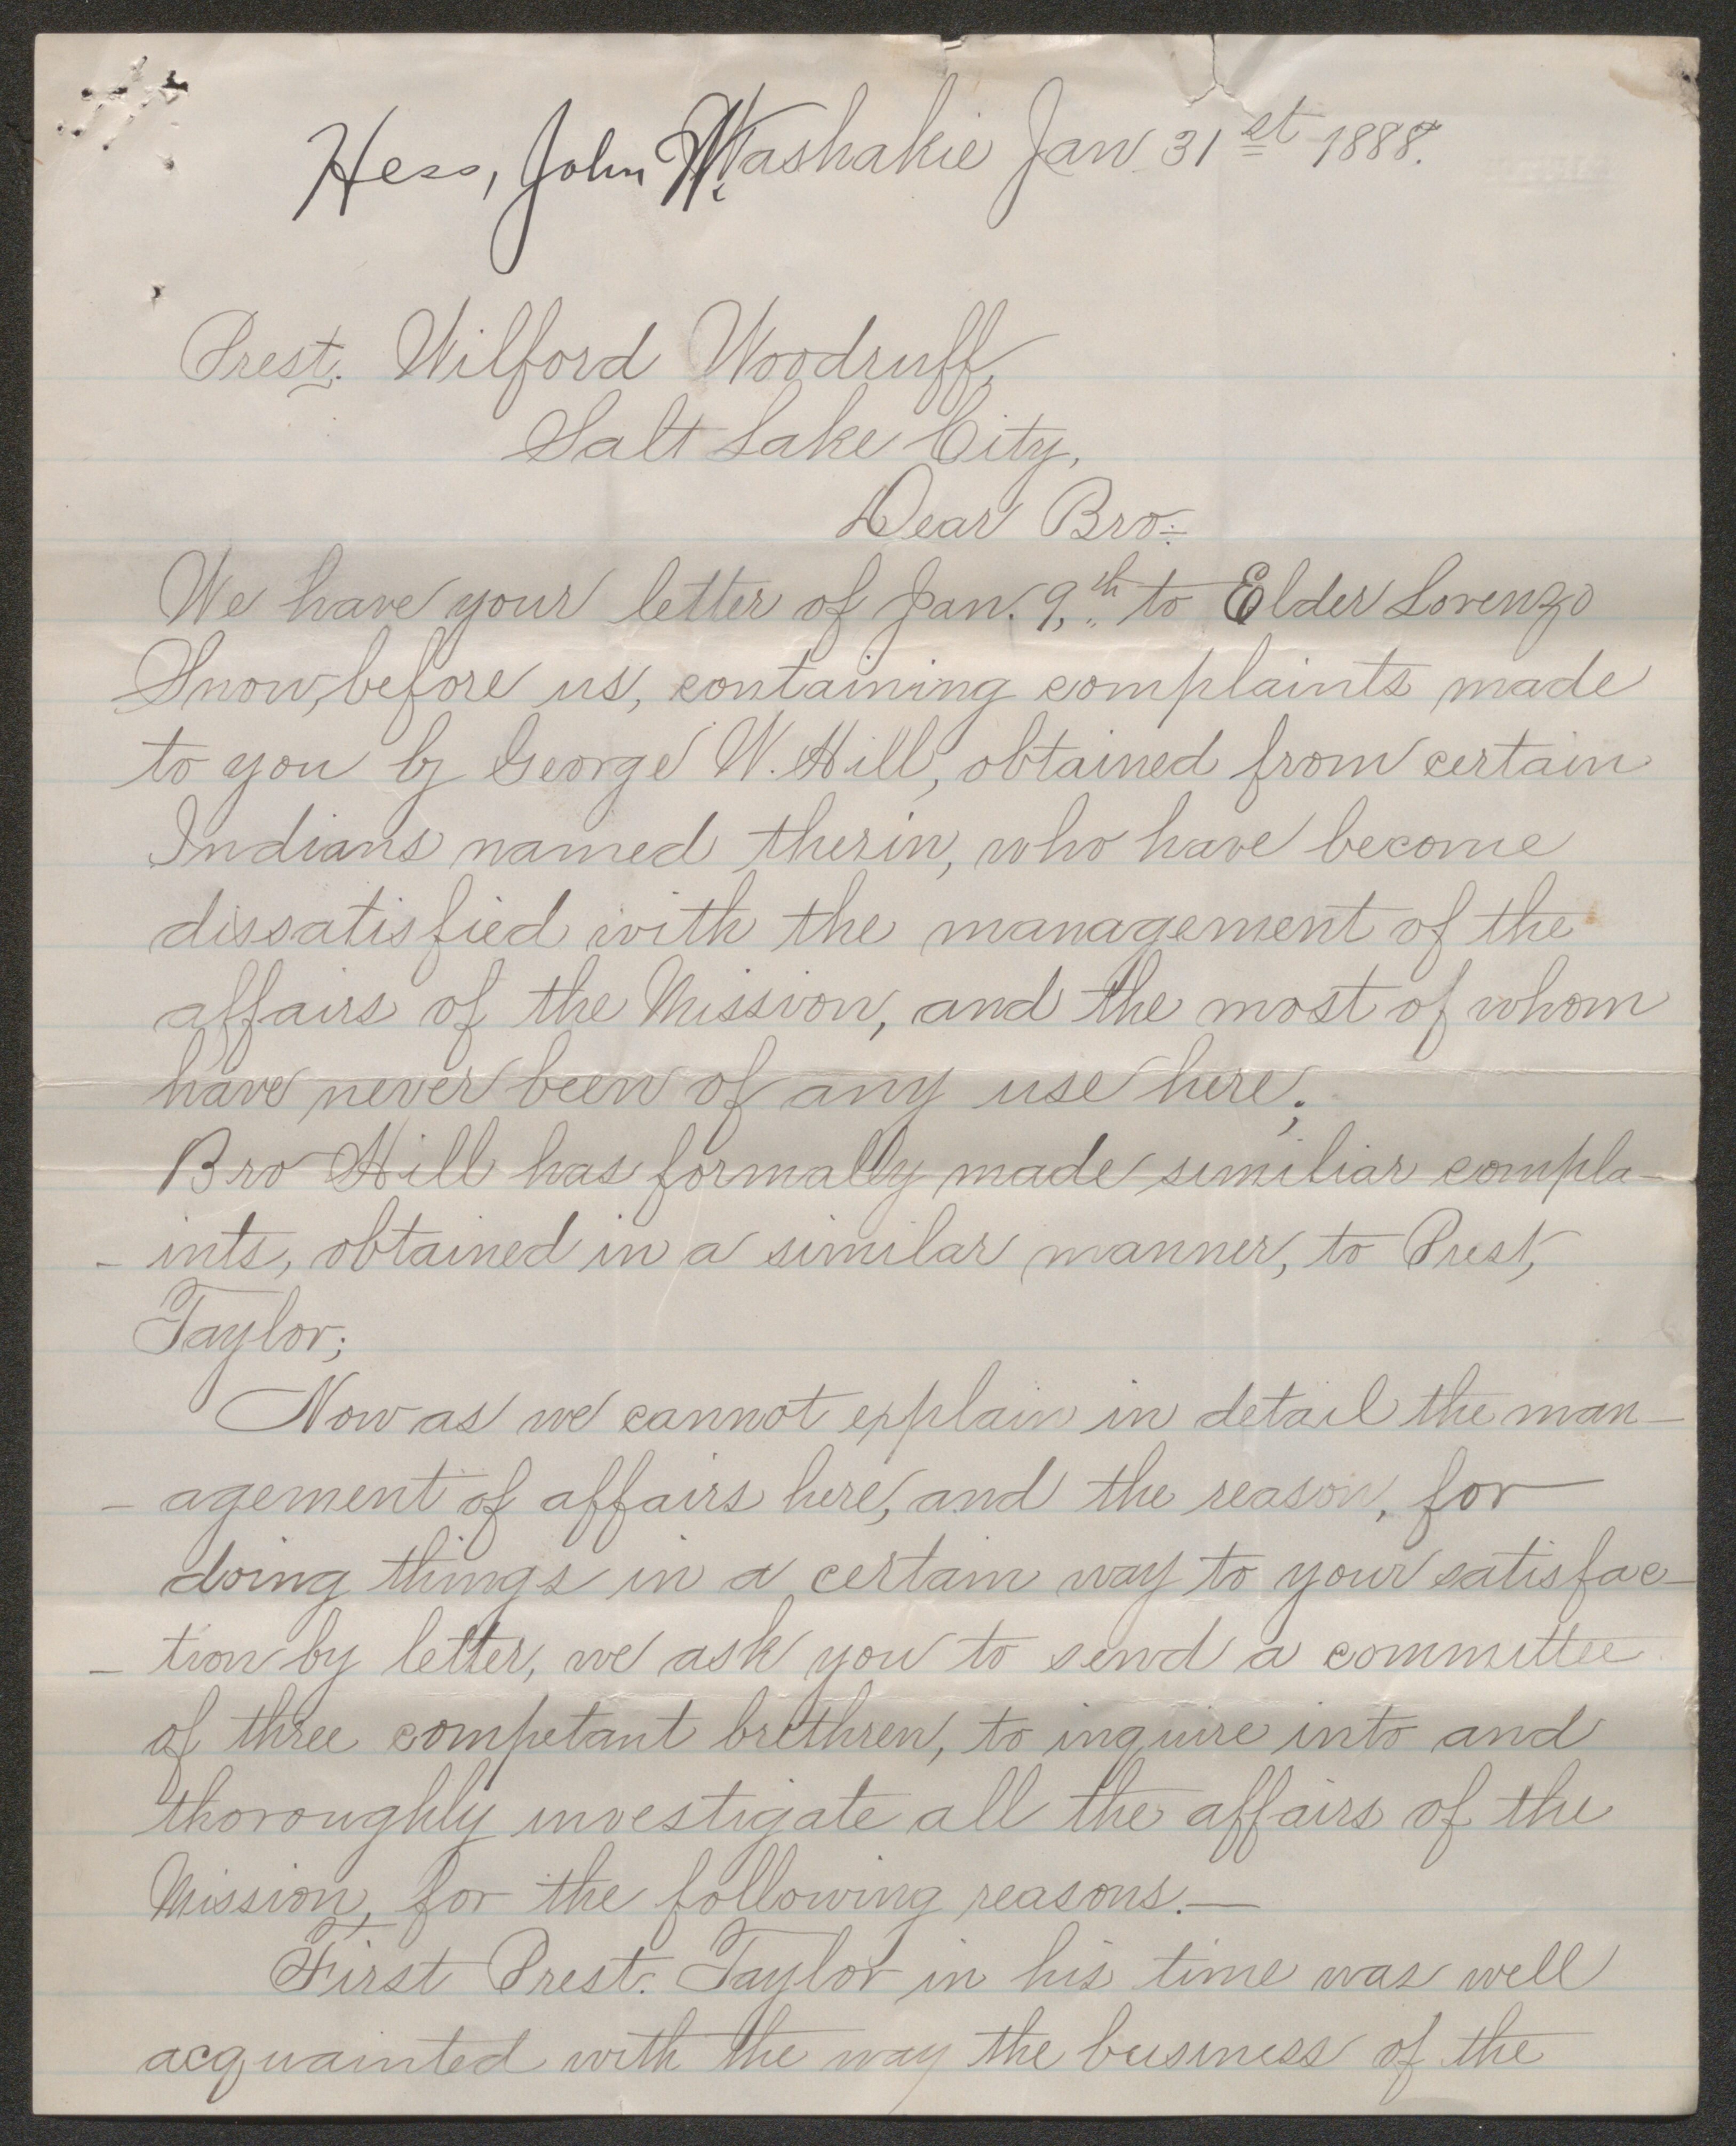 Hess, John W. Washakie Jan 31st 1888.
Prest. Wilford Woodruff,
Salt Lake City,
Dear Bro:
We have your letter of Jan. 9,th to Elder Lorenzo
Snow, before us, containing complaints made
to you by George W. Hill, obtained from certain
Indians named therin, who have become
dissatisfied with the management of the
affairs of the Mission, and the most of whom
have never been of any use here;
Bro Hill has formally made similiar compla-
- ints, obtained in a similar manner, to Prest,
Taylor;
Now as we cannot explain in detail the man-
- agement of affairs here, and the reason, for
doing things in a certain way to your satisfac-
- tion by letter, we ask you to send a committee
of three competant brethren, to inquire into and
thoroughly investigate all the affairs of the
Mission, for the following reasons.—
First Prest. Taylor in his time was well
acquainted with the way the business of the